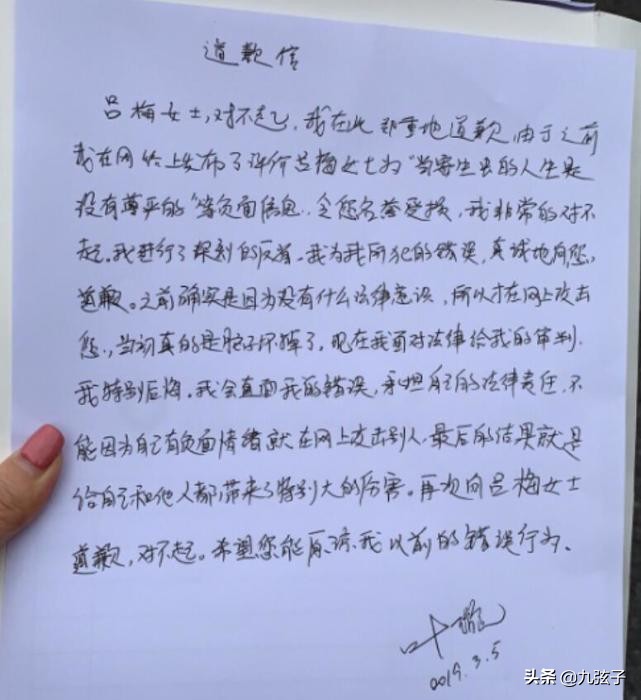 道歉信
吕梅女士,对不起,我在此郑重地道歉,由于之前
我在网络上发布了评价吕梅女士为"当寄生虫的人生是
没有尊严的"等负面信息,令您名誉受损,我非常的对不
起。我进行了深刻的反省,我为我所犯的错误,真诚地向您
道歉。之前确实是因为没有什么法律意识,所以才在网上攻击
您,当初真的是脑子坏掉了,现在我面对法律给我的审判,
我特别后悔。我会直面我的错误,承担自己的法律责任,不
能因为自己有负面情绪就在网上攻击别人,最后的结果就是
给自己和他人都带来了特别大的伤害。再次向吕梅女士
道歉,对不起。希望您能原谅我以前的错误行为。
叶
2019.3.5
头条 @九弦子